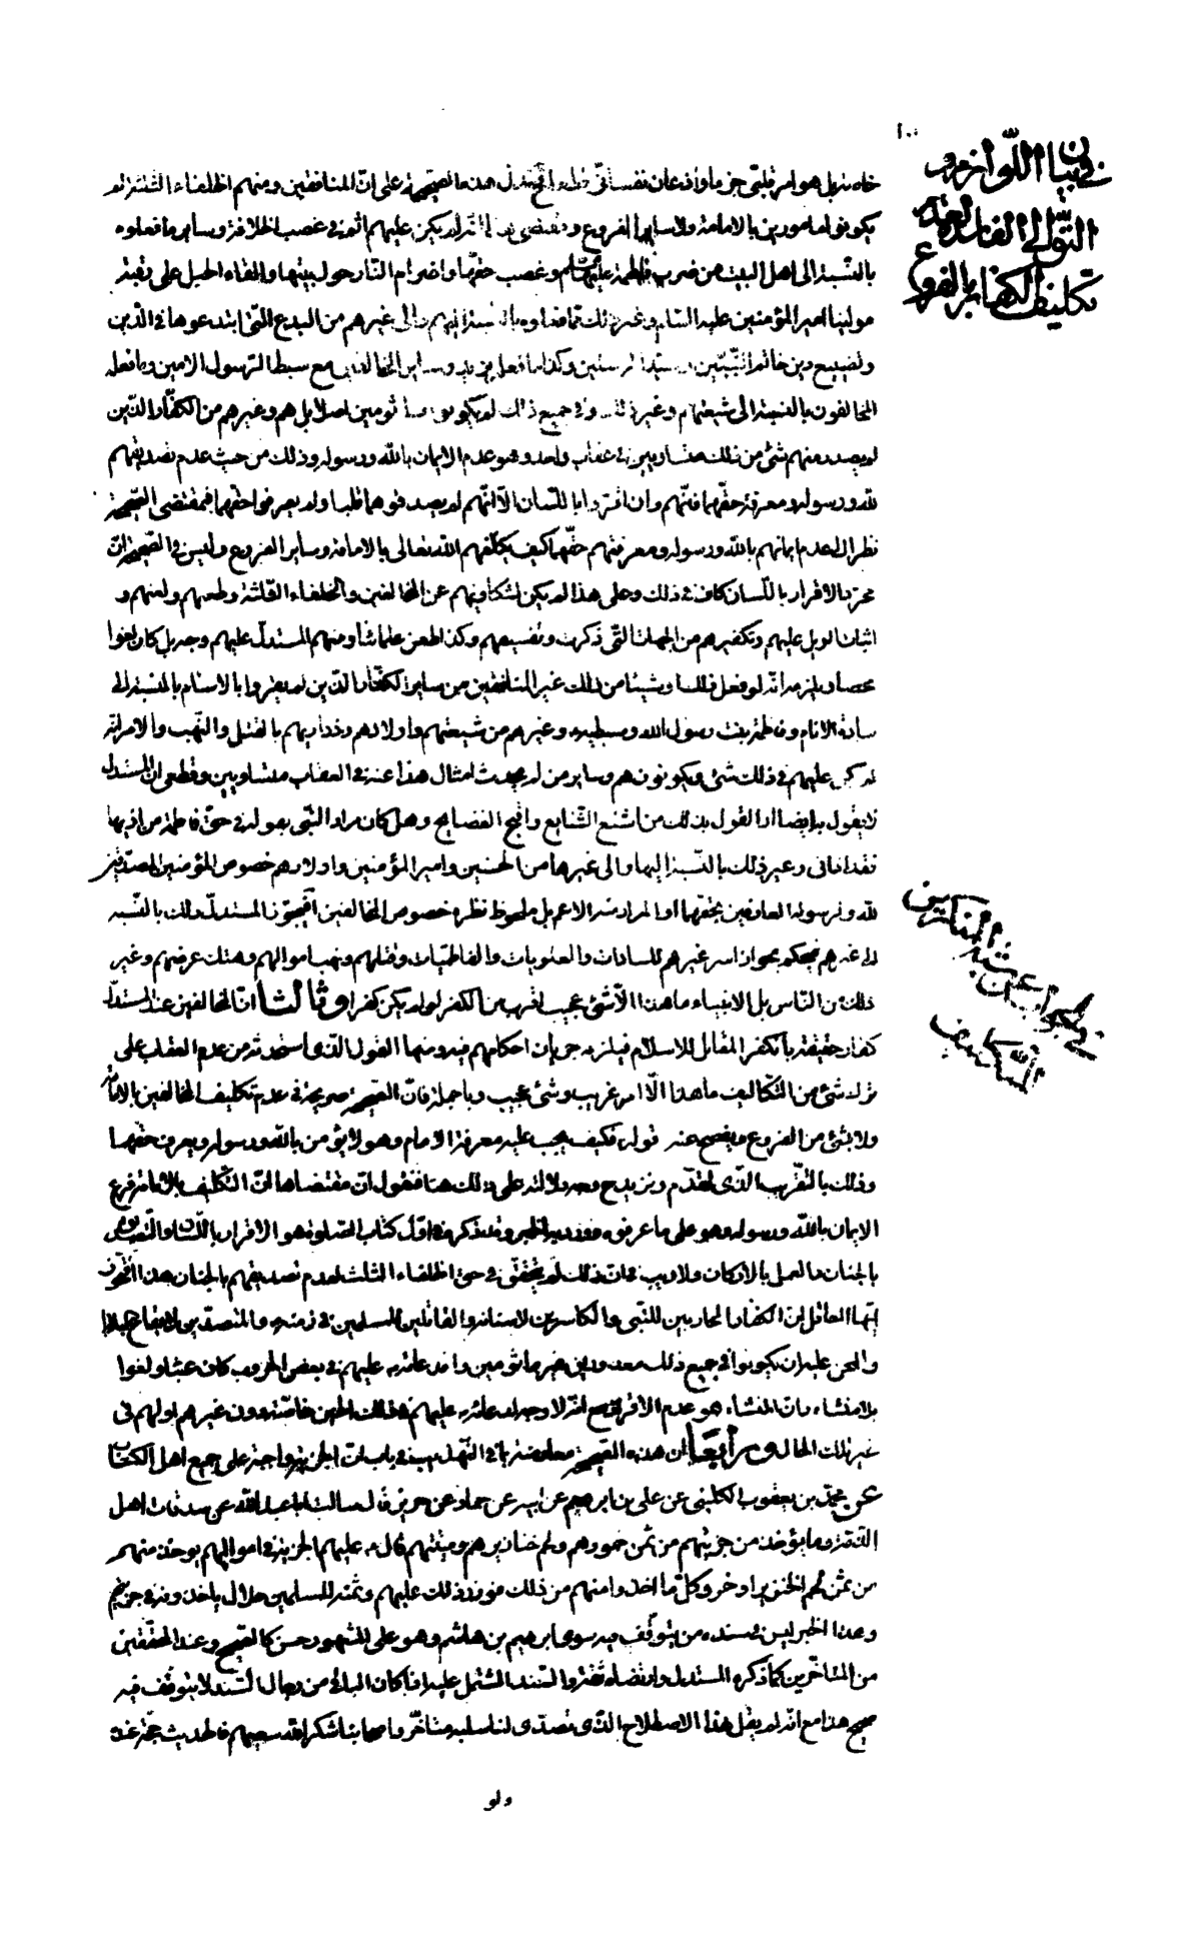 ١٠٠
في بيان اللوازم و
التوالي الفاسدة لعدم
تكليف الكفار بالفروع
بل هو امر قلبي جزما واذعان نفساني على ان المنافقين ومنهم الخلفاء الثلثة لم
يكونوا مامورين بالامامة ولا ساير الفروع ومقتضى انه لم يكن عليهم اثم في غصب الخلافة وساير ما فعلوه
بالنسبة الى اهل البيت من ضرب فاطمة وغصب حقها واضرام النار حول بيتها والقاء الحبل على رقبة
مولينا امير المؤمنين عليه السلام وغير ذلك مما فعلوه بالنسبة اليهم والى غيرهم من البدع التي ابتدعوها في الدين
وتضييع دين خاتم النبيين وسيد المرسلين وكذا ما فعل يزيد وساير المخالفين مع سبط الرسول الامين وما فعله
المخالفون بالنسبة الى شيعتهم وغير ذلك وفي جميع ذلك لم يكونوا ماثومين اصلا بل هم وغيرهم من الكفار الذين
لم يصدر منهم شئ من ذلك متساويين في عقاب واحد وهو عدم الايمان بالله ورسوله وذلك من حيث عدم تصديقهم
لله ورسوله ومعرفة حقهما فانهم وان اقروا باللسان الا انهم لم يصدقوهما قلبا ولم يعرفوا حقهما فمقتضى الصحيحة
نظرا الى عدم ايمانهم بالله ورسوله ومعرفتهم حقهما كيف يكلفهم الله تعالى بالامامة وساير الفروع وليس في الصحيحة ان
مجرد الاقرار باللسان كاف في ذلك وعلى هذا لم يكن لشكاويهم عن المخالفين والخلفاء الثلثة ولعنهم و
اثبات الويل عليهم وتكفيرهم من الجهات التي ذكرت وتفسيقهم وكذا طعن علمائنا ومنهم المستدل عليهم وجه بل كان لغوا
محضا ويلزم انه لو فعل ذلك او شيئا من ذلك غير المنافقين من ساير الكفار الذين لم يقروا بالاسلام بالنسبة الى
سادة الانام وفاطمة بنت رسول الله وسبطيه وغيرهم من شيعتهم واولادهم وذراريهم بالقتل والنهب والاسر انه
لم يكن عليهم في ذلك شئ ويكونون هم وساير من لم يحدث امثال هذا عنه في العقاب متساويين وقطعي ان المستدل
لا يقول به ايضا اذ القول بذلك من اشنع الشنايع واقبح الفضايح وهل كان مراد النبي بقوله في حق فاطمة من اذيها
فقد اذاني وغير ذلك بالنسبة اليها والى غيرها من الحسنين وامير المؤمنين واولادهم خصوص المؤمنين المصدقين
لله ولرسوله العارفين بحقهما او المراد منه الاعم بل ملحوظ نظره خصوص المخالفين افيجوز المستدل ذلك بالنسبة
الى غيرهم فيحكم بجواز اسر غيرهم للسادات والعلويات والفاطميات وقتلهم ونهب اموالهم وهتك عرضهم وغير
ذلك من الناس بل الانبياء ما هذا الا شئ عجيب لقرب من الكفر لو لم يكن كفرا وثالثا ان المخالفين عند المستدل
كفار حقيقة بالكفر المقابل للاسلام فيلزمه جريان احكامهم فيه ومنها القول الذي استحدثه من عدم العقاب على
ترك شئ من التكاليف ما هذا الا امر غريب وشئ عجيب وبالجملة فان الصحيحة صريحة في عدم تكليف المخالفين بالامامة
ولا بشئ من الفروع ويفصح عنه قوله فكيف يجب عليه معرفة الامام وهو لا يؤمن بالله ورسوله ويعرف حقهما
وذلك بالتقريب الذي تقدم ونزيد وجه دلالته على ذلك هنا فنقول ان مقتضاها ان التكليف بالامامة فرع
الايمان بالله ورسوله وهو على ما عرفوه وورد به الخبر وقد ذكر في اول كتاب الصلوة هو الاقرار باللسان والتصديق
بالجنان والعمل بالاركان ولا ريب في ان ذلك لم يتحقق في حق الخلفاء الثلث لعدم تصديقهم بالجنان
ايها العاقل ان الكفار المحاربين للنبي والكاسرين لاسنانه والقاتلين المسلمين في زمنه والمتصدين
والحق عليه ان يكونوا في جميع ذلك معذورين غير ماثومين وقد عائه عليهم في بعض الحروب كان عبثا ولغوا
بلا منشاء فان المنشاء هو عدم الاقرار مع انه لا وجه لدعائه عليهم في ذلك الحين خاصة دون غيرهم او لهم في
غير تلك الحال ورابعا ان هذه الصحيحة معارضة بما في التهذيب في باب ان الجزية واجبة على جميع اهل الكتاب
عن محمد بن يعقوب الكليني عن علي بن ابراهيم عن ابيه عن حماد عن حريز قال سالت ابا عبد الله عن صدقات اهل
الذمة وما يؤخذ من جزيتهم من ثمن خمورهم ولحم خنازيرهم وميتتهم قال عليهم الجزية في اموالهم يؤخذ منهم
من ثمن لحم الخنزير او خمر وكل ما اخذوا منهم من ذلك فوزر ذلك عليهم وثمنه للمسلمين حلال ياخذونه في جزيتهم
وهذا الخبر ليس في سنده من يتوقف فيه سوى ابرهيم بن هاشم وهو على المشهور حسن كالصحيح وعند المحققين
من المتاخرين كما ذكره المستدل وارتضاه ثقة والسند المشتمل عليه اذا كان الباقي من رجال السند لا يتوقف فيه
صحيح هذا مع انه لم يقل هذا الاصطلاح الذي تصدى لتاسيسه متاخروا اصحابنا شكر الله سعيهم فالحديث حجة عنده
في الجواب عن شبه المنكرين
ولو